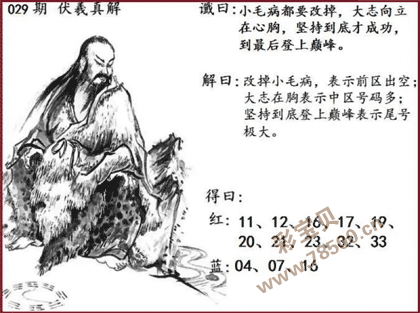 029期 伏羲真解
谶曰:小毛病都要改掉,大志向立
在心胸,坚持到底才成功,
到最后登上巅峰。
解曰:改掉小毛病,表示前区出空;
大志在胸表示中区号码多;
坚持到底登上巅峰表示尾号
极大。
得曰:
红: 11、12、16、17、19、
20、21、23、32、33
蓝: 04、07、16
彩宝贝
www.78500.cn